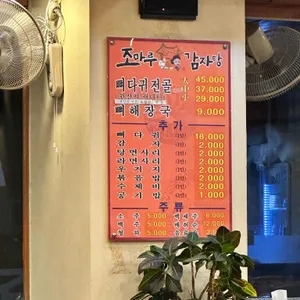 조마루 감자탕
뼈다귀전골 大 45.000
中 37.000
小 29.000
뼈해장국 9.000
추가
뼈다귀 18.000
감자 2.000
당면사리 2.000
라면사리 2.000
우거지 2.000
볶음밥 2.000
수제비 2.000
공기밥 1.000
주류
소주 5.000
맥주 5.000